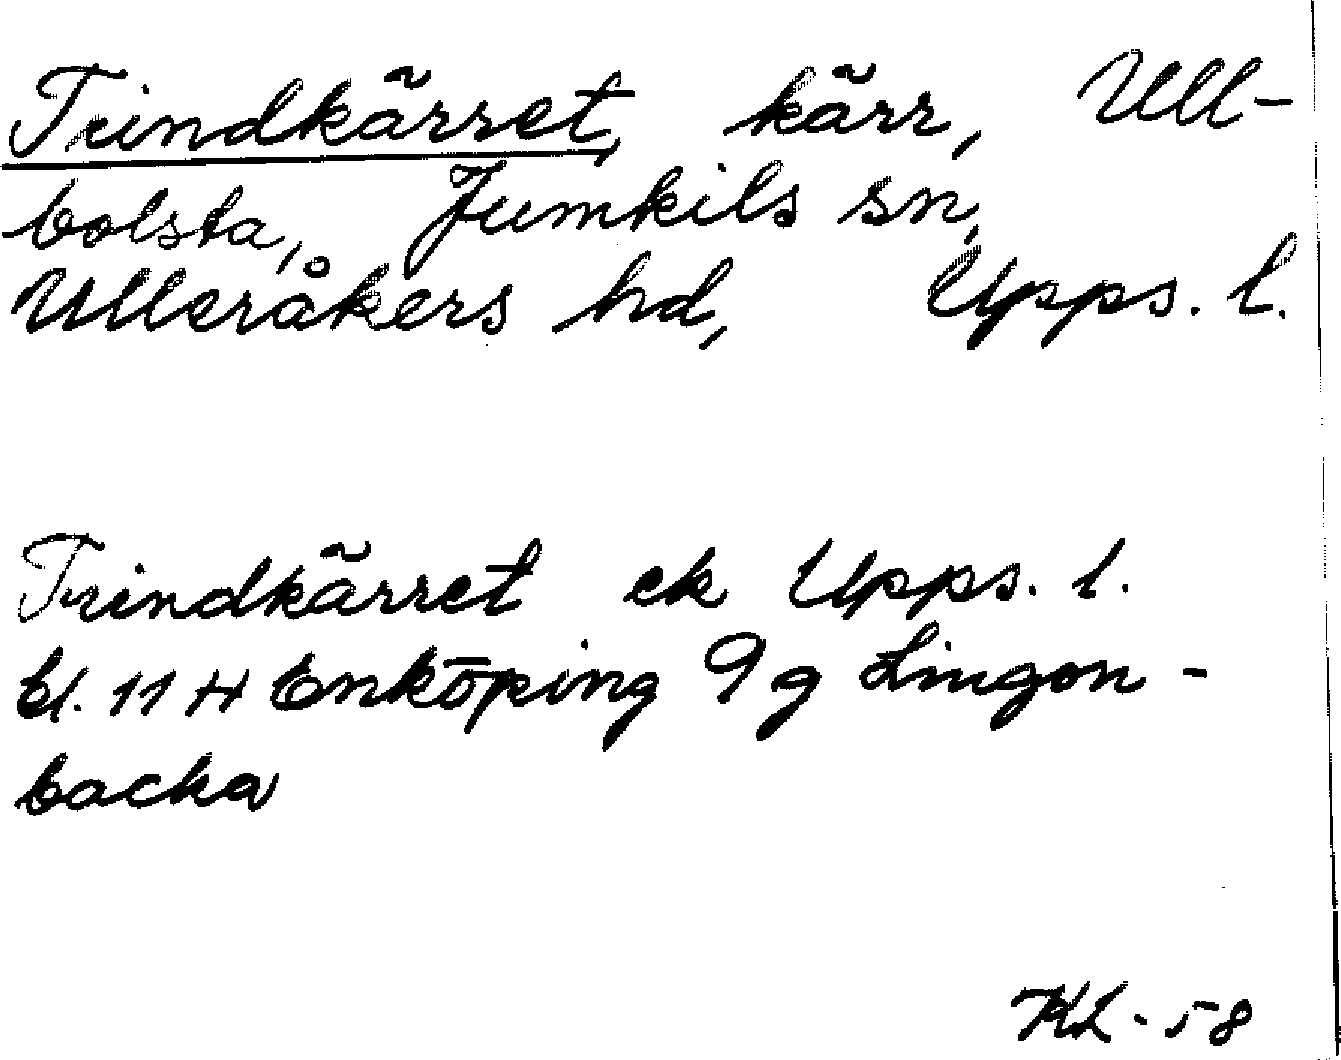 Trindkärret, kärr, Ull-
bolsta, Jumkils sn,
Ulleråkers hd, Upps. l.
Trindkärret ek Upps. l.
bl. 11 H Enköping 9 g Lingon-
backa
KL - 58